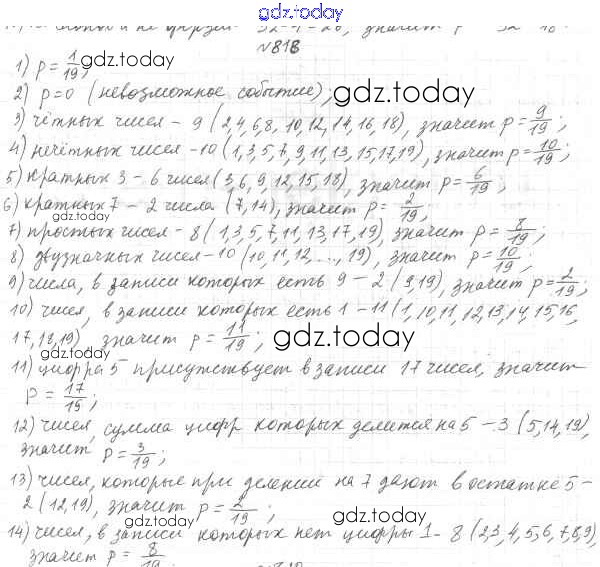 gdz.today
№818
1) p = 1/19;
gdz.today
2) p=0 (невозможное событие);
gdz.today
3) чётных чисел - 9 (2,4,6,8, 10,12,14,16,18), значит p = 9/19;
4) нечётных чисел -10 (1,3,5,7,9,11,13,15,17,19), значит p = 10/19;
5) кратных 3 - 6 чисел (3,6,9,12,15,18), значит p = 6/19;
6) кратных 7 - 2 числа (7,14), значит p = 2/19;
gdz.today
7) простых чисел - 8 (1,3,5,7,11,13,17,19), значит p = 8/19;
8) двузначных чисел -10 (10,11,12,..., 19), значит p = 10/19;
gdz.today
9) числа, в записи которых есть 9 - 2 (9,19), значит p = 2/19;
10) чисел, в записи которых есть 1 - 11 (1,10,11,12,13,14,15,16,
17,18,19) значит p = 11/19;
gdz.today
11) цифра 5 присутствует в записи 17 чисел, значит
p = 17/19;
gdz.today
12) чисел, сумма цифр которых делится на 5 - 3 (5,14,19),
значит p = 3/19;
gdz.today
13) чисел, которые при делении на 7 дают в остатке 5 -
2 (12,19), значит p = 2/19;
gdz.today
14) чисел, в записи которых нет цифры 1 - 8 (2,3,4,5,6,7,8,9),
значит p = 8/19
gdz.today